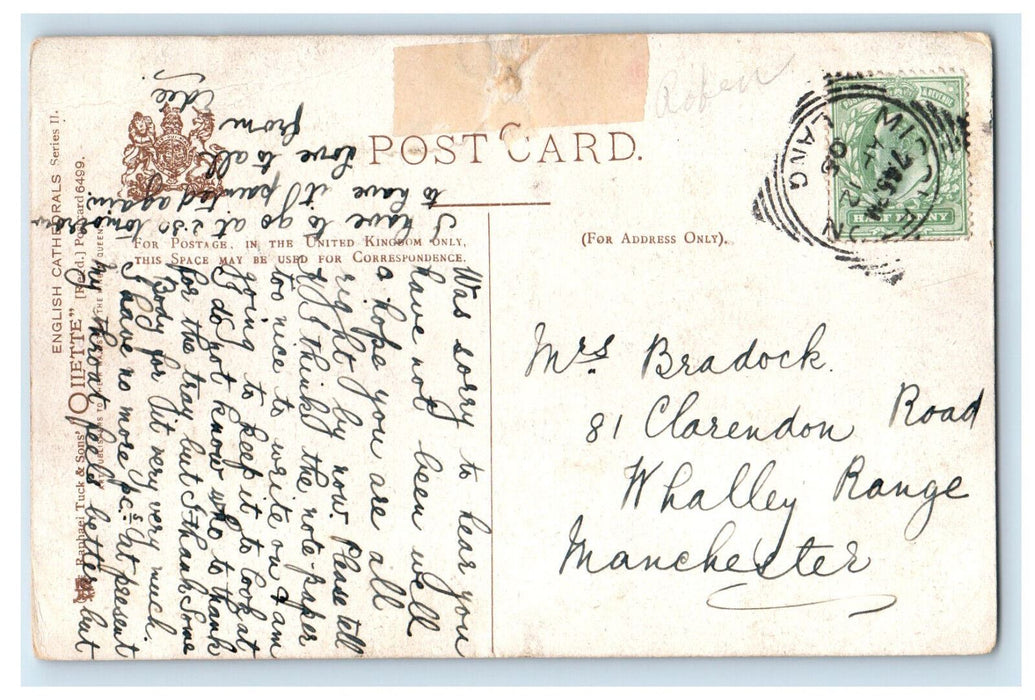 POST CARD.
(FOR ADDRESS ONLY).
FOR POSTAGE, IN THE UNITED KINGDOM ONLY,
THIS SPACE MAY BE USED FOR CORRESPONDENCE.
ENGLISH CATHEDRALS Series II.
Raphael Tuck & Sons' "OILETTE" [Regd.] Postcard 6499.
HALF PENNY
7.45PM
05
Mrs Bradock.
81 Clarendon Road
Whalley Range
Manchester
Was sorry to hear you
have not been well
a hope you are all
right by now. Please tell
I think the note paper
too nice to write on & am
going to keep it to look at
I do not know who to thank
for the tray but I thank Some
Body for it very very much.
I have no more pcs at present
my throat feels better but
I have to go at 2.30 tomorrow
to have it painted again
Love to all
from
Edie.